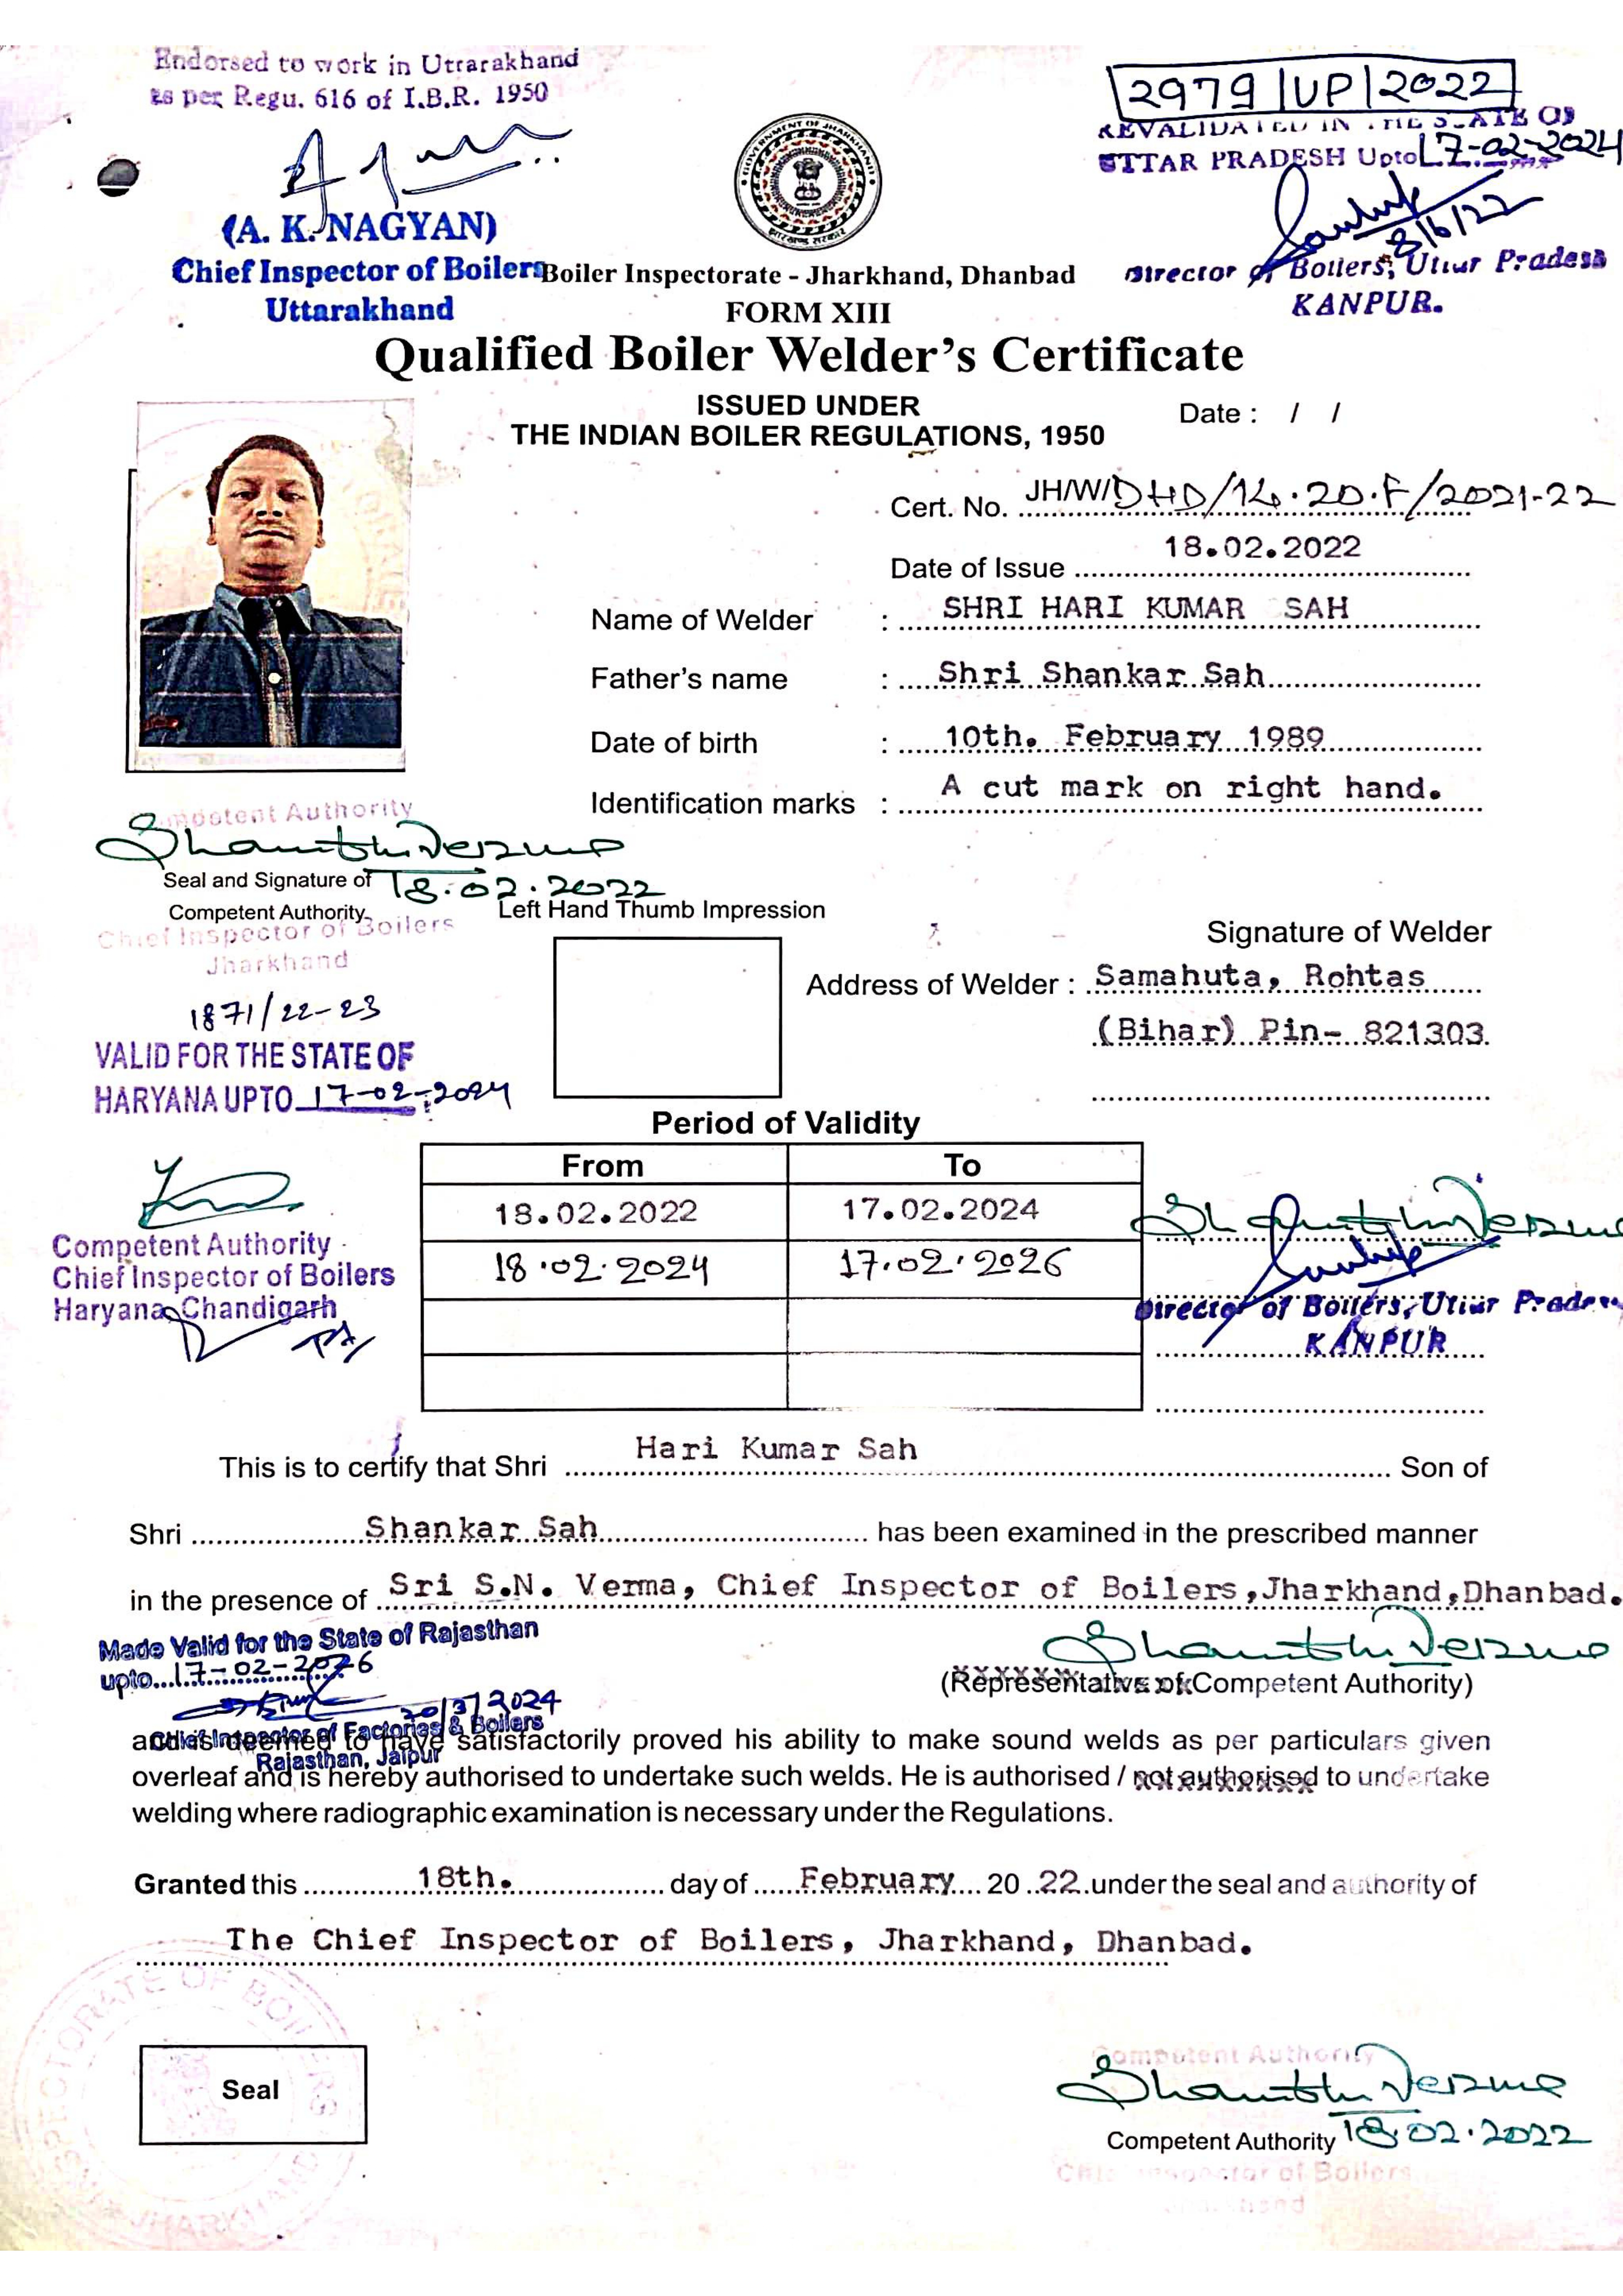 Endorsed to work in Uttarakhand
as per Regu. 616 of I.B.R. 1950
(A. K. NAGYAN)
Chief Inspector of Boilers
Uttarakhand
GOVERNMENT OF JHARKHAND
झारखण्ड सरकार
2979/UP/2022
REVALIDATED IN THE STATE OF
UTTAR PRADESH Upto 17-02-2024
8/6/22
Director of Boilers, Uttar Pradesh
KANPUR.
Boiler Inspectorate - Jharkhand, Dhanbad
FORM XIII
Qualified Boiler Welder's Certificate
ISSUED UNDER
THE INDIAN BOILER REGULATIONS, 1950
Date : / /
Cert. No. JH/W/DHD/14.20.F/2021-22
Date of Issue 18.02.2022
Name of Welder : SHRI HARI KUMAR SAH
Father's name : Shri Shankar Sah
Date of birth : 10th. February 1989
Identification marks : A cut mark on right hand.
Competent Authority
Seal and Signature of 18.02.2022
Competent Authority
Chief Inspector of Boilers
Jharkhand
Left Hand Thumb Impression
Signature of Welder
Address of Welder : Samahuta, Rohtas
(Bihar) Pin- 821303
1871/22-23
VALID FOR THE STATE OF
HARYANA UPTO 17-02-2024
Competent Authority
Chief Inspector of Boilers
Haryana, Chandigarh
Period of Validity
From To
18.02.2022 17.02.2024
18.02.2024 17.02.2026
Director of Boilers, Uttar Pradesh
KANPUR
This is to certify that Shri Hari Kumar Sah Son of
Shri Shankar Sah has been examined in the prescribed manner
in the presence of Sri S.N. Verma, Chief Inspector of Boilers, Jharkhand, Dhanbad.
Made Valid for the State of Rajasthan
upto 17-02-2026
20/3/2024
Chief Inspector of Factories & Boilers
Rajasthan, Jaipur
(Representative of Competent Authority)
and is deemed to have satisfactorily proved his ability to make sound welds as per particulars given
overleaf and is hereby authorised to undertake such welds. He is authorised / not authorised to undertake
welding where radiographic examination is necessary under the Regulations.
Granted this 18th. day of February 20 22 under the seal and authority of
The Chief Inspector of Boilers, Jharkhand, Dhanbad.
Seal
Competent Authority
Competent Authority 18.02.2022
Chief Inspector of Boilers
Jharkhand